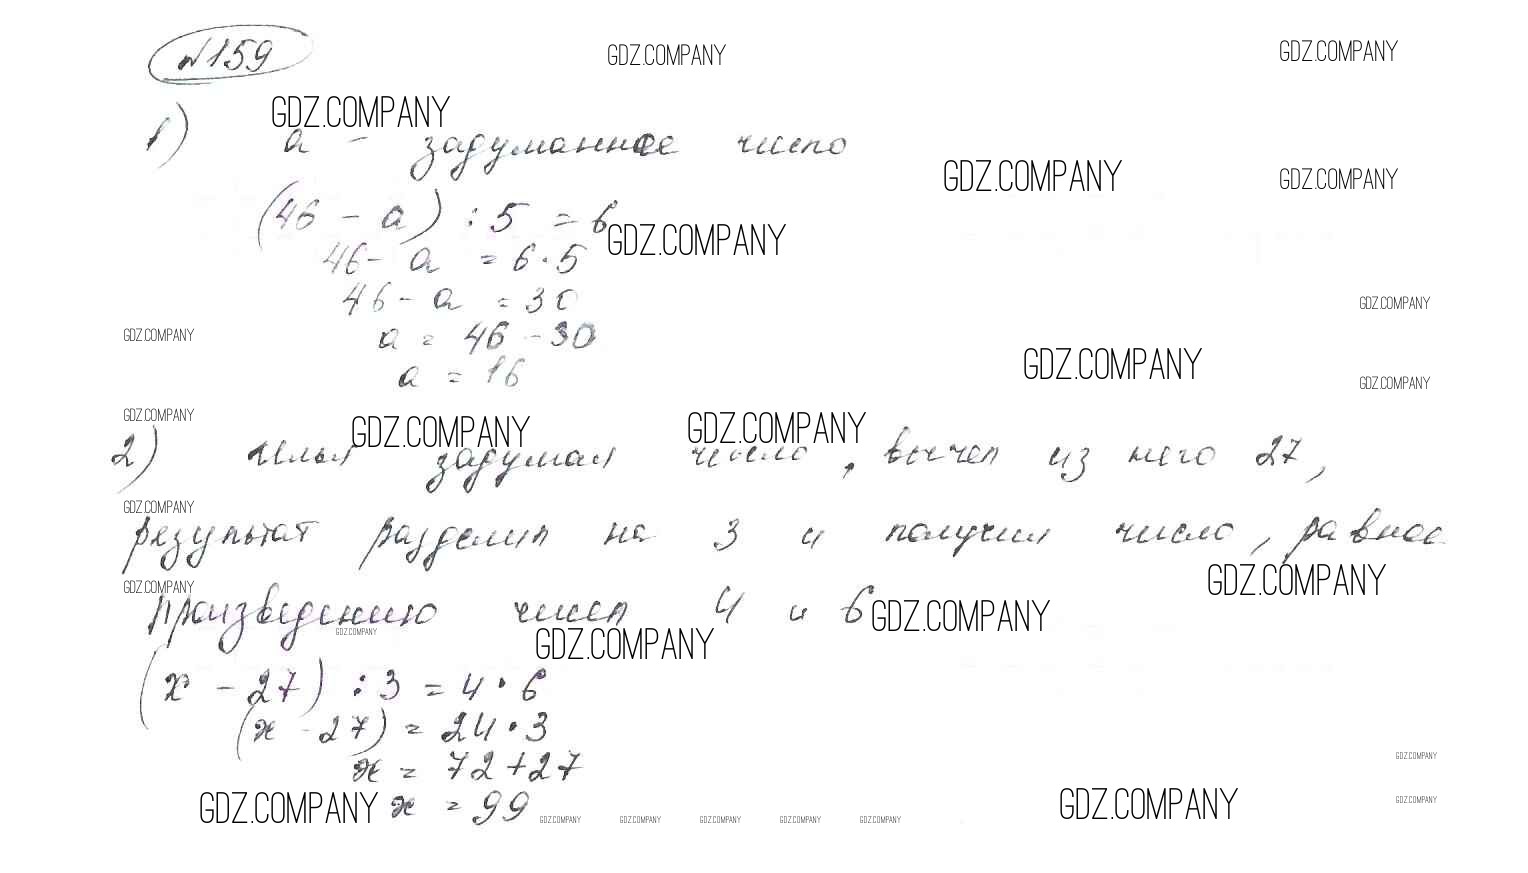 №159
GDZ.COMPANY
GDZ.COMPANY
GDZ.COMPANY
1) а - задуманное число
GDZ.COMPANY
GDZ.COMPANY
(46 - а) : 5 = 6
GDZ.COMPANY
46 - а = 6 · 5
46 - а = 30
GDZ.COMPANY
GDZ.COMPANY
а = 46 - 30
GDZ.COMPANY
а = 16
GDZ.COMPANY
GDZ.COMPANY
GDZ.COMPANY
GDZ.COMPANY
2) Илья задумал число, вычел из него 27,
GDZ.COMPANY
результат разделил на 3 и получил число, равное
GDZ.COMPANY
GDZ.COMPANY
произведению чисел 4 и 6
GDZ.COMPANY
GDZ.COMPANY
GDZ.COMPANY
(х - 27) : 3 = 4 · 6
(х - 27) = 24 · 3
GDZ.COMPANY
х = 72 + 27
GDZ.COMPANY
х = 99
GDZ.COMPANY
GDZ.COMPANY
GDZ.COMPANY
GDZ.COMPANY
GDZ.COMPANY
GDZ.COMPANY
GDZ.COMPANY
GDZ.COMPANY